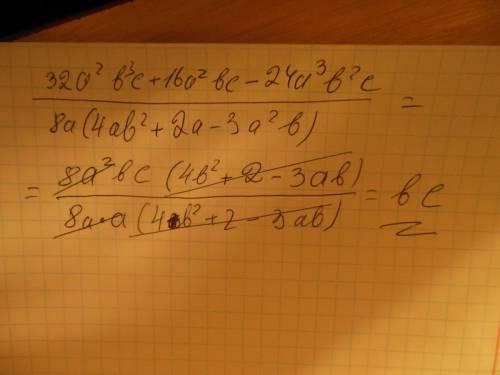 32a² b³c + 16a² bc - 24a³b²c
8a(4ab² + 2a - 3a² b)
=
= 8a² bc (4b² + 2 - 3ab)
8a·a (4b² + 2 - 3ab)
= bc